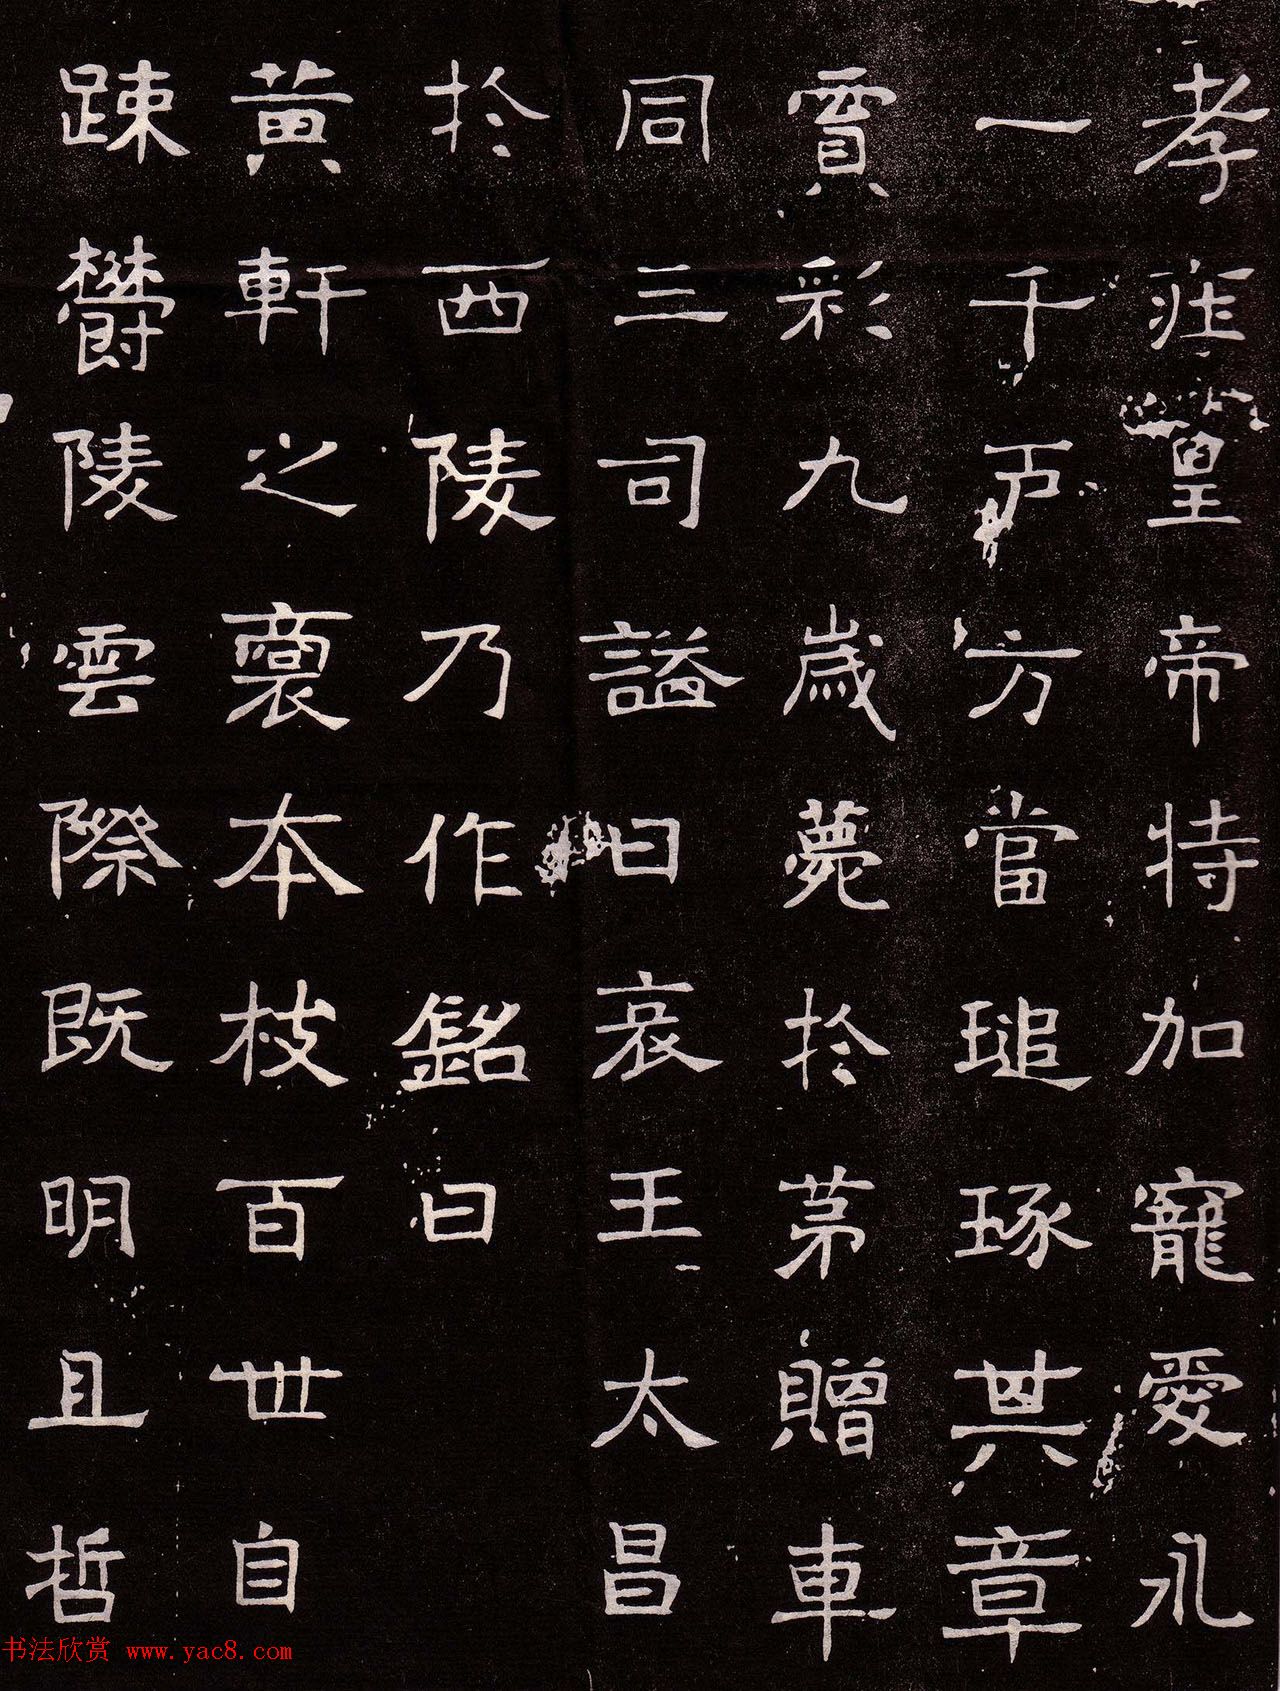 孝莊皇帝特加寵愛永
一千戶方當琢琢其章
賣彩九歲薨於茅贈車
同三司謚曰哀王太昌
於西陵乃作銘曰
黃軒之裔本枝百世自
疎鬱陵雲際既明且哲
书法欣赏 www.yac8.com